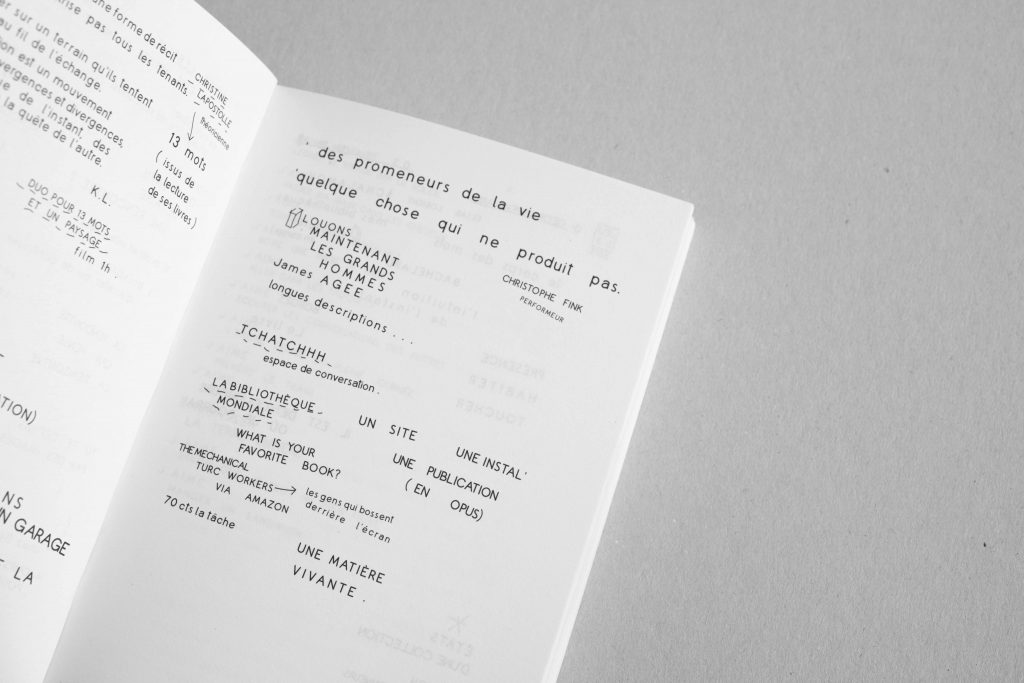 une forme de récit
pas tous les tenants.
er sur un terrain qu'ils tentent
au fil de l'échange.
est un mouvement
et divergences,
de l'instant, des
la quête de l'autre.
K.L.
DUO POUR 13 MOTS
ET UN PAYSAGE
film 1h .
CHRISTINE
LAPOSTOLLE
théoricienne
13 mots
( issus de
la lecture
de ses livres )
GARAGE
LA
' des promeneurs de la vie
'quelque chose qui ne produit pas.
CHRISTOPHE FINK
PERFORMEUR
LOUONS
MAINTENANT
LES GRANDS
HOMMES
James AGEE
longues descriptions . . .
TCHATCHHH
espace de conversation .
LA BIBLIOTHÈQUE
MONDIALE
UN SITE
UNE INSTAL'
WHAT IS YOUR
FAVORITE BOOK?
UNE PUBLICATION
( EN OPUS)
THE MECHANICAL
TURC WORKERS →
VIA AMAZON
les gens qui bossent
derrière l'écran
70 cts la tâche
UNE MATIÈRE
VIVANTE .